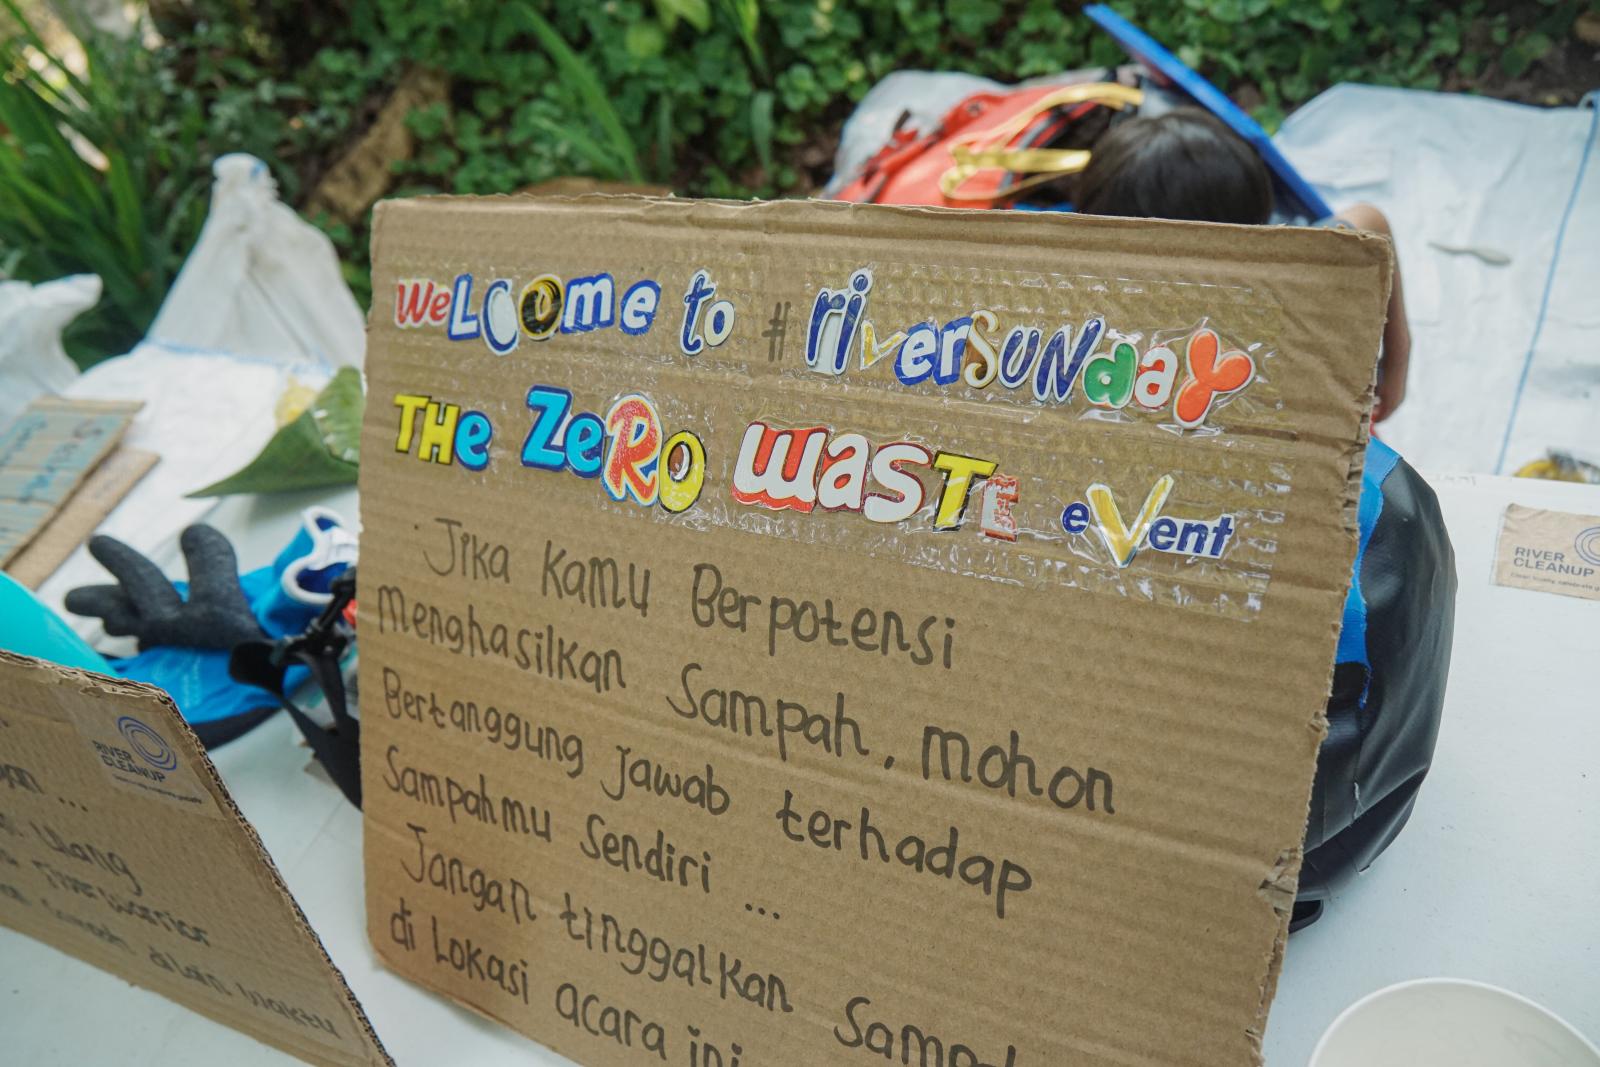 WeLCOme to #riverSUNdaY
THe ZeRO waSTE eVent
Jika Kamu Berpotensi
Menghasilkan Sampah, Mohon
Bertanggung Jawab terhadap
Sampahmu Sendiri ...
Jangan tinggalkan
di Lokasi acara ini
RIVER
CLEANUP
RIVER
CLEANUP
...
Ulang